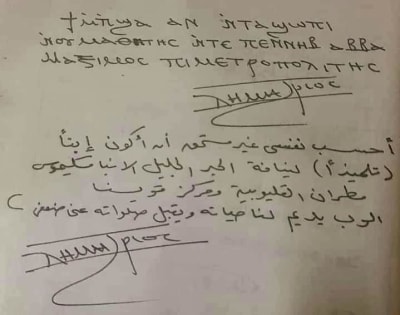 ϯⲙ̀ⲡϣⲁ ⲁⲛ ⲛ̀ⲧⲁϣⲱⲡⲓ
ⲛ̀ⲟⲩⲙⲁⲑⲏⲧⲏⲥ ⲛ̀ⲧⲉ ⲡⲉⲛⲛⲏⲃ ⲁⲃⲃⲁ
ⲙⲁⲝⲓⲙⲟⲥ ⲡⲓⲙⲉⲧⲣⲟⲡⲟⲗⲓⲧⲏⲥ
أحسب نفسى غير مستحق أن أكون إبناً
(تلميذاً) لنيافة الحبر الجليل الانبا مكسيموس
مطران القليوبية ومركز قويسنا
الرب يديم لنا حياته ويقبل صلواته عن